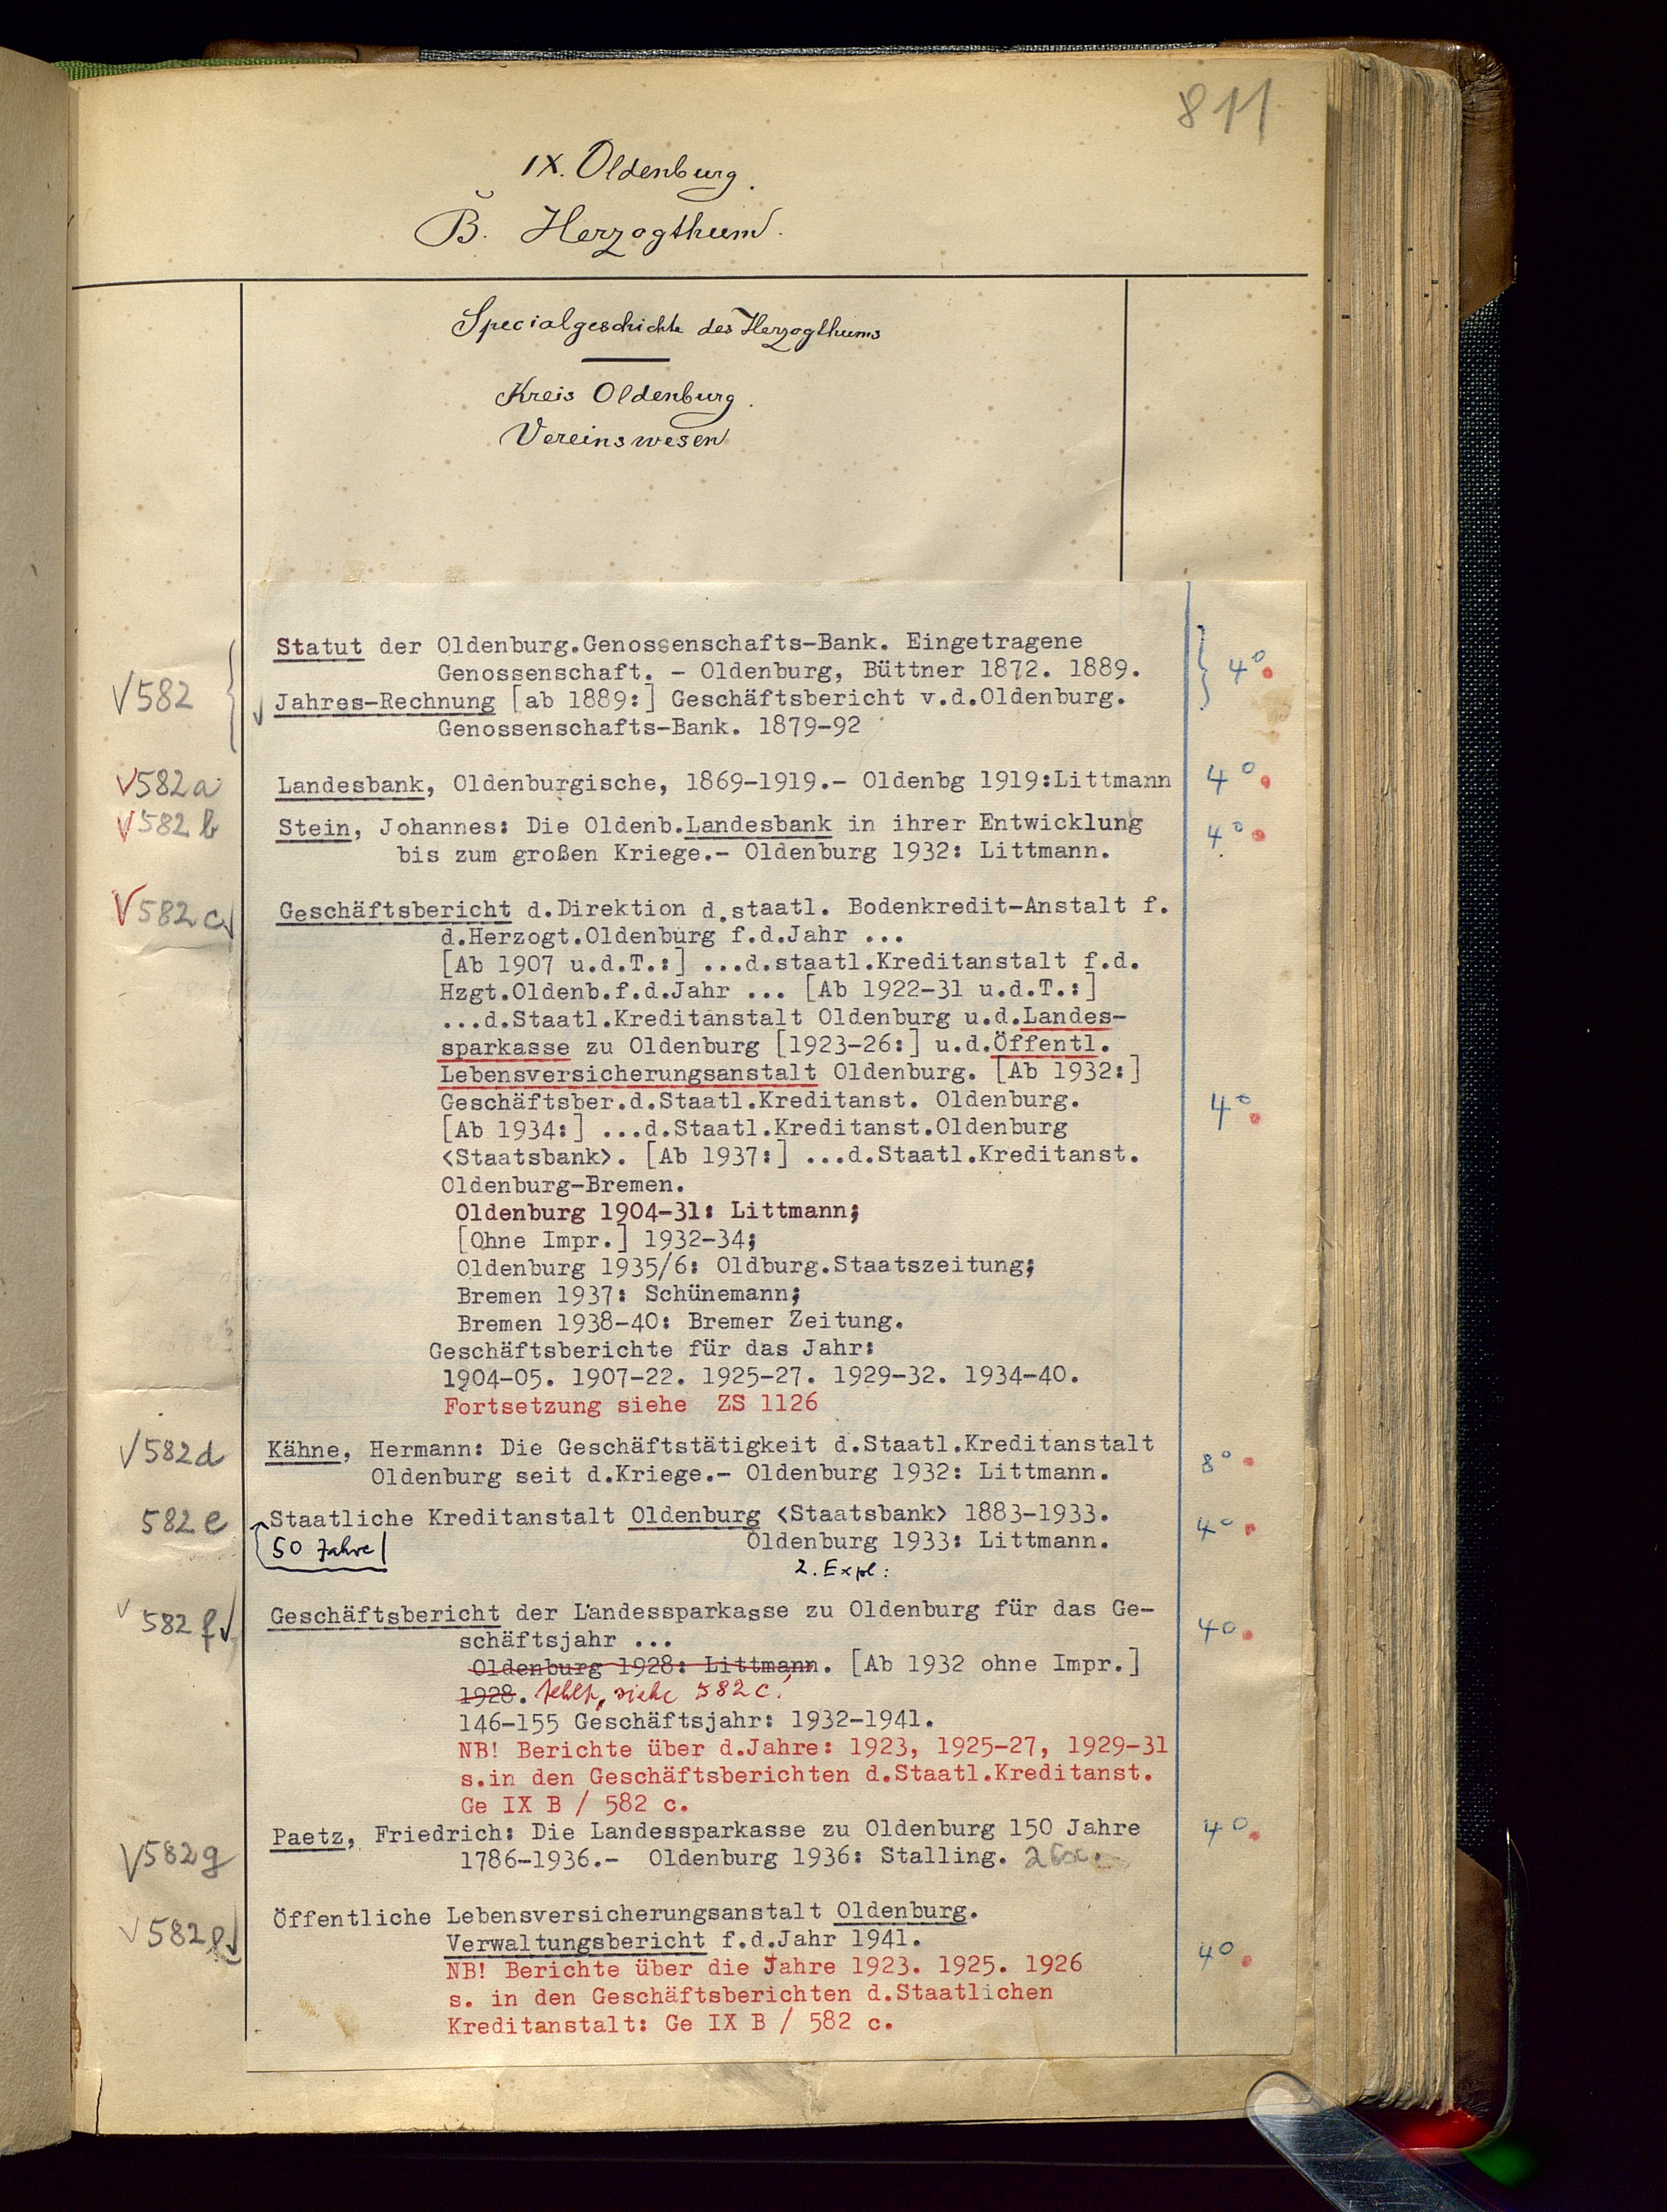 811
IX. Oldenburg.
B. Herzogthum.
Specialgeschichte des Herzogthums
Kreis Oldenburg.
Vereinswesen
Statut der Oldenburg.Genossenschafts-Bank. Eingetragene
Genossenschaft. - Oldenburg, Büttner 1872. 1889.
√582 4°
Jahres-Rechnung [ab 1889:] Geschäftsbericht v.d.Oldenburg.
Genossenschafts-Bank. 1879-92
√582a Landesbank, Oldenburgische, 1869-1919.- Oldenbg 1919:Littmann 4°
√582 b Stein, Johannes: Die Oldenb.Landesbank in ihrer Entwicklung 4°
bis zum großen Kriege.- Oldenburg 1932: Littmann.
√582 c Geschäftsbericht d.Direktion d.staatl. Bodenkredit-Anstalt f.
d.Herzogt.Oldenburg f.d.Jahr ...
[Ab 1907 u.d.T.:] ...d.staatl.Kreditanstalt f.d.
Hzgt.Oldenb.f.d.Jahr ... [Ab 1922-31 u.d.T.:]
...d.Staatl.Kreditanstalt Oldenburg u.d.Landes-
sparkasse zu Oldenburg [1923-26:] u.d.Öffentl.
Lebensversicherungsanstalt Oldenburg. [Ab 1932:]
Geschäftsber.d.Staatl.Kreditanst. Oldenburg. 4°
[Ab 1934:] ...d.Staatl.Kreditanst.Oldenburg
<Staatsbank>. [Ab 1937:] ...d.Staatl.Kreditanst.
Oldenburg-Bremen.
Oldenburg 1904-31: Littmann;
[Ohne Impr.] 1932-34;
Oldenburg 1935/6: Oldburg.Staatszeitung;
Bremen 1937: Schünemann;
Bremen 1938-40: Bremer Zeitung.
Geschäftsberichte für das Jahr:
1904-05. 1907-22. 1925-27. 1929-32. 1934-40.
Fortsetzung siehe ZS 1126
√582d Kähne, Hermann: Die Geschäftstätigkeit d.Staatl.Kreditanstalt 8°
Oldenburg seit d.Kriege.- Oldenburg 1932: Littmann.
582 e Staatliche Kreditanstalt Oldenburg <Staatsbank> 1883-1933. 4°
50 Jahre Oldenburg 1933: Littmann.
2. Expl:
√ 582 f Geschäftsbericht der Landessparkasse zu Oldenburg für das Ge- 4°
schäftsjahr ...
Oldenburg 1928: Littmann. [Ab 1932 ohne Impr.]
1928. fehlt, siehe 582 c!
146-155 Geschäftsjahr: 1932-1941.
NB! Berichte über d.Jahre: 1923, 1925-27, 1929-31
s.in den Geschäftsberichten d.Staatl.Kreditanst.
Ge IX B / 582 c.
√582g Paetz, Friedrich: Die Landessparkasse zu Oldenburg 150 Jahre 4°
1786-1936.- Oldenburg 1936: Stalling.
√582 Öffentliche Lebensversicherungsanstalt Oldenburg.
Verwaltungsbericht f.d.Jahr 1941. 4°
NB! Berichte über die Jahre 1923. 1925. 1926
s. in den Geschäftsberichten d.Staatlichen
Kreditanstalt: Ge IX B / 582 c.